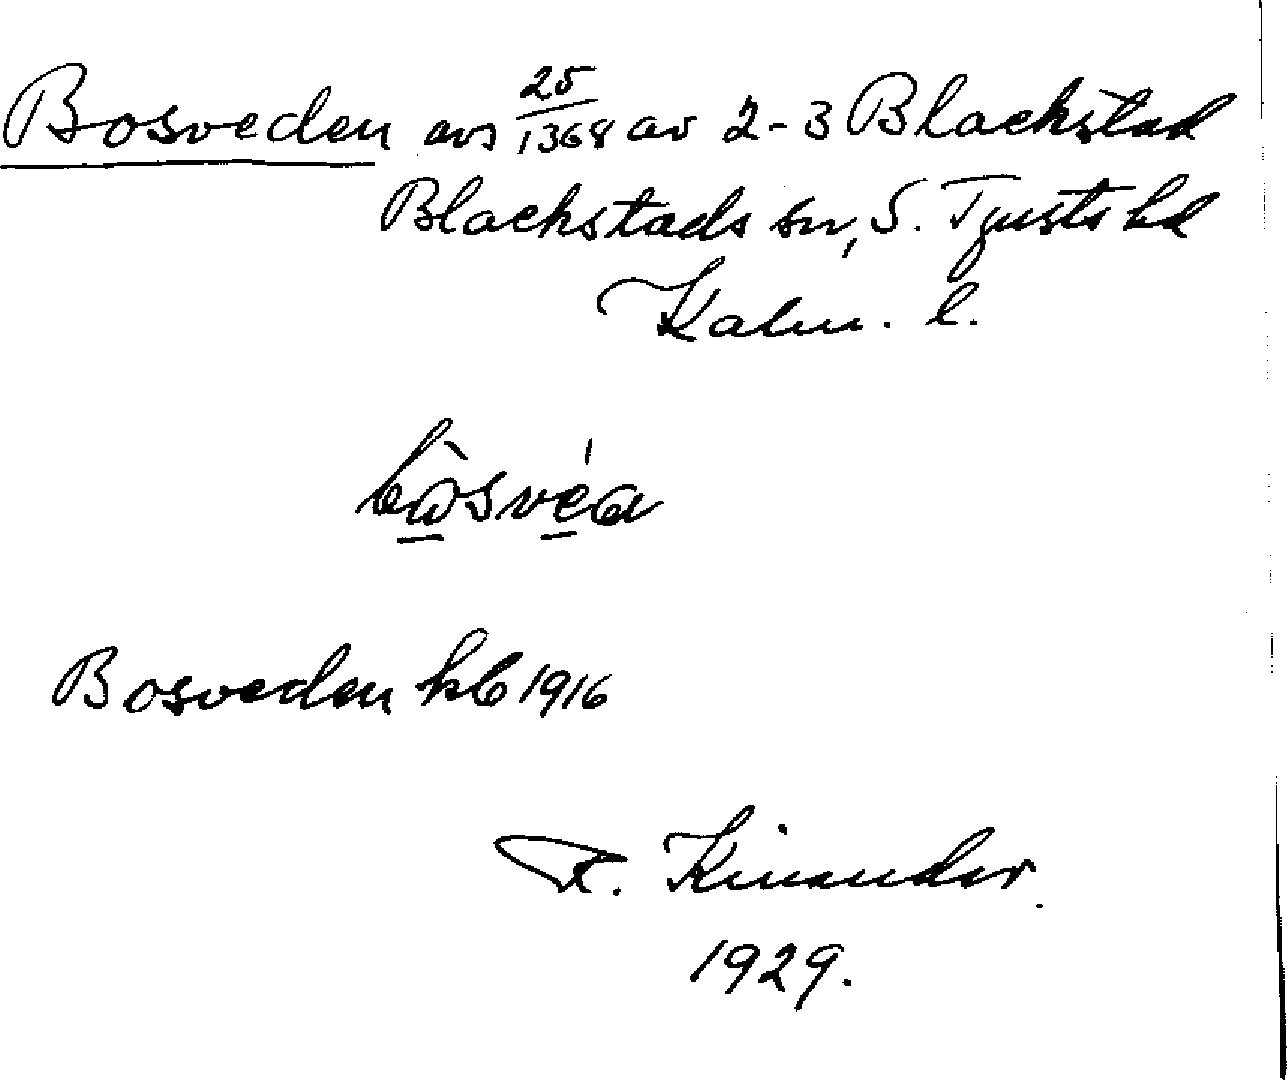 Bosveden avs 25/1368 av 2-3 Blackstad
Blackstads sn, S. Tjusts hd
Kalm. l.
Bosveden kb 1916
F. Kinander.
1929.